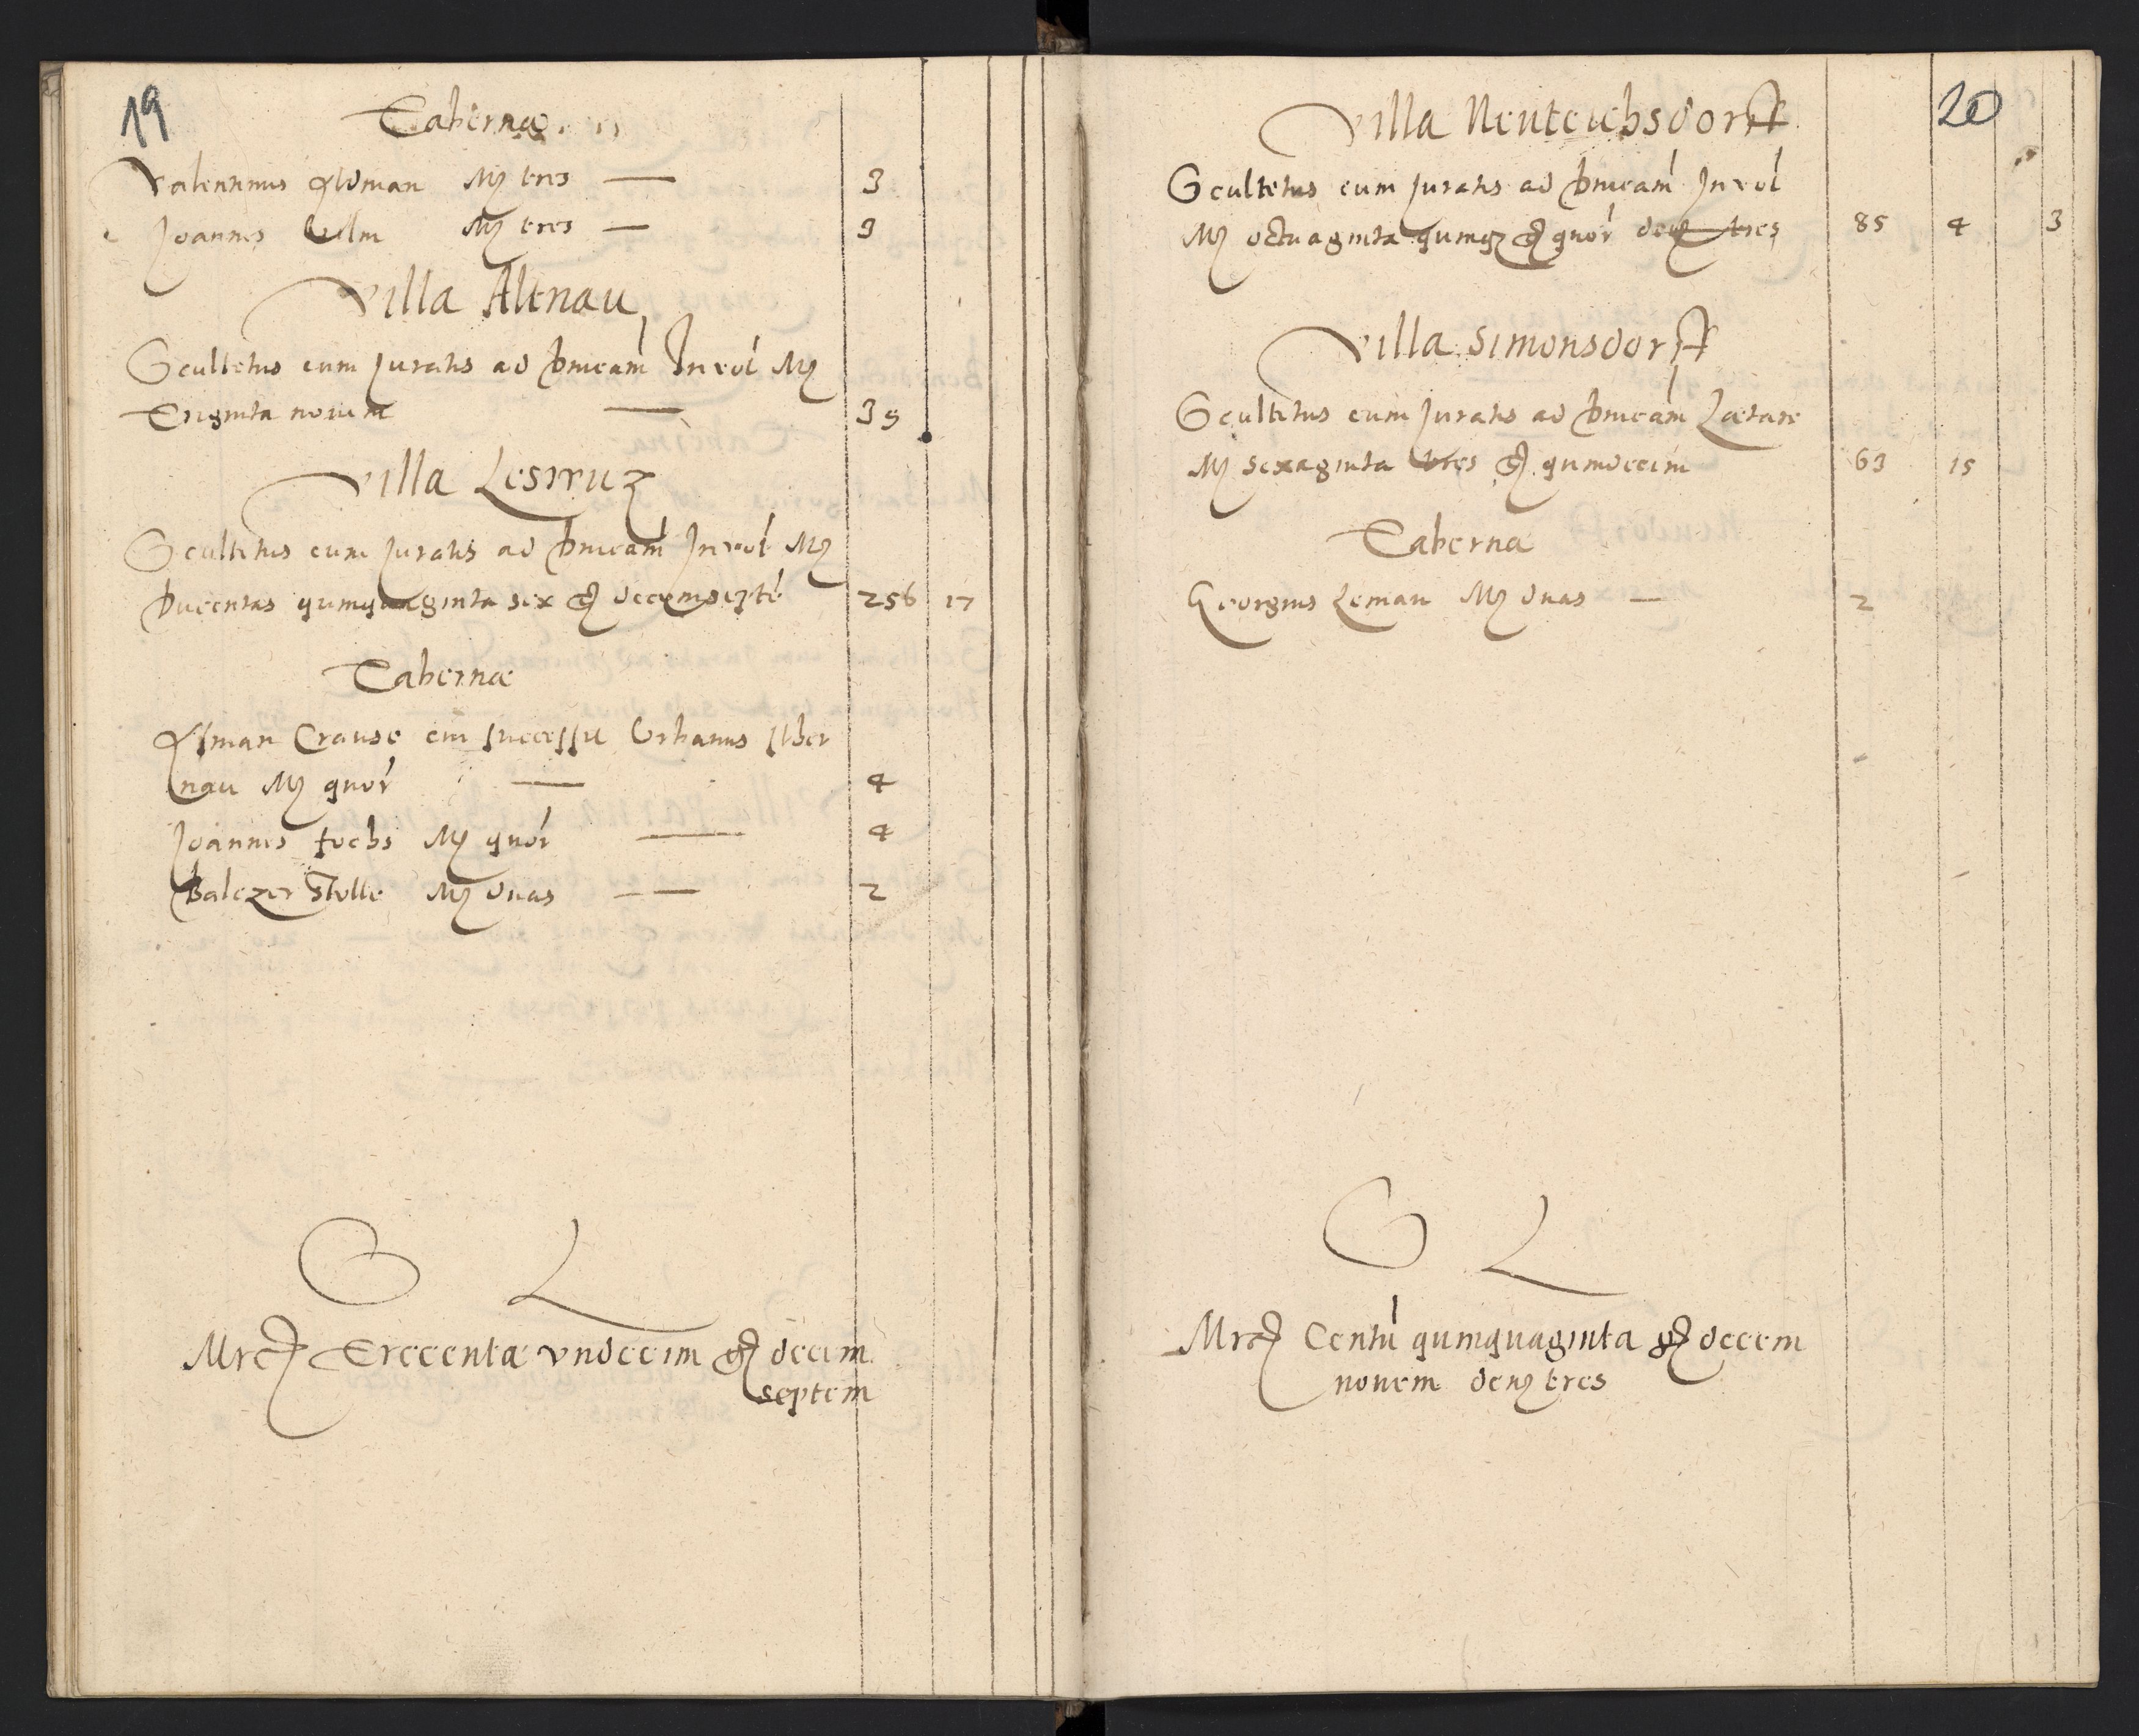 19
Tabernæ
Valentinus Thoman Mʒ tres — 3
Joannes Wilm Mʒ tres — 3
Villa Altnau
Scultetus cum Juratis ad Dnicam Invoł Mʒ
Triginta novem — 39
Villa Leswuz
Scultetus cum Juratis ad Dnicam Invoł Mʒ
Ducentas quinquaginta sex gr decemseptē 256 17
Tabernæ
Crause cui successit Urbanus
nau Mʒ quor — 4
Joannes fochs Mʒ quor — 4
Balczer Stolle Mʒ duas — 2
S L
Mrc Trecentæ undecim gr decem
septem
20
Villa Neuteichsdorff
Scultetus cum Juratis ad Dnicam Invoł
Mʒ octuaginta quinqʒ gr quor denʒ tres 85 4 3
Villa Simonsdorff
Scultetus cum Juratis ad Dnicam Lætare
Mʒ sexaginta tres gr quindecim 63 15
Taberna
Georgius Leman Mʒ duas — 2
S L
Mrc Centū quinquaginta gr decem
novem denʒ tres